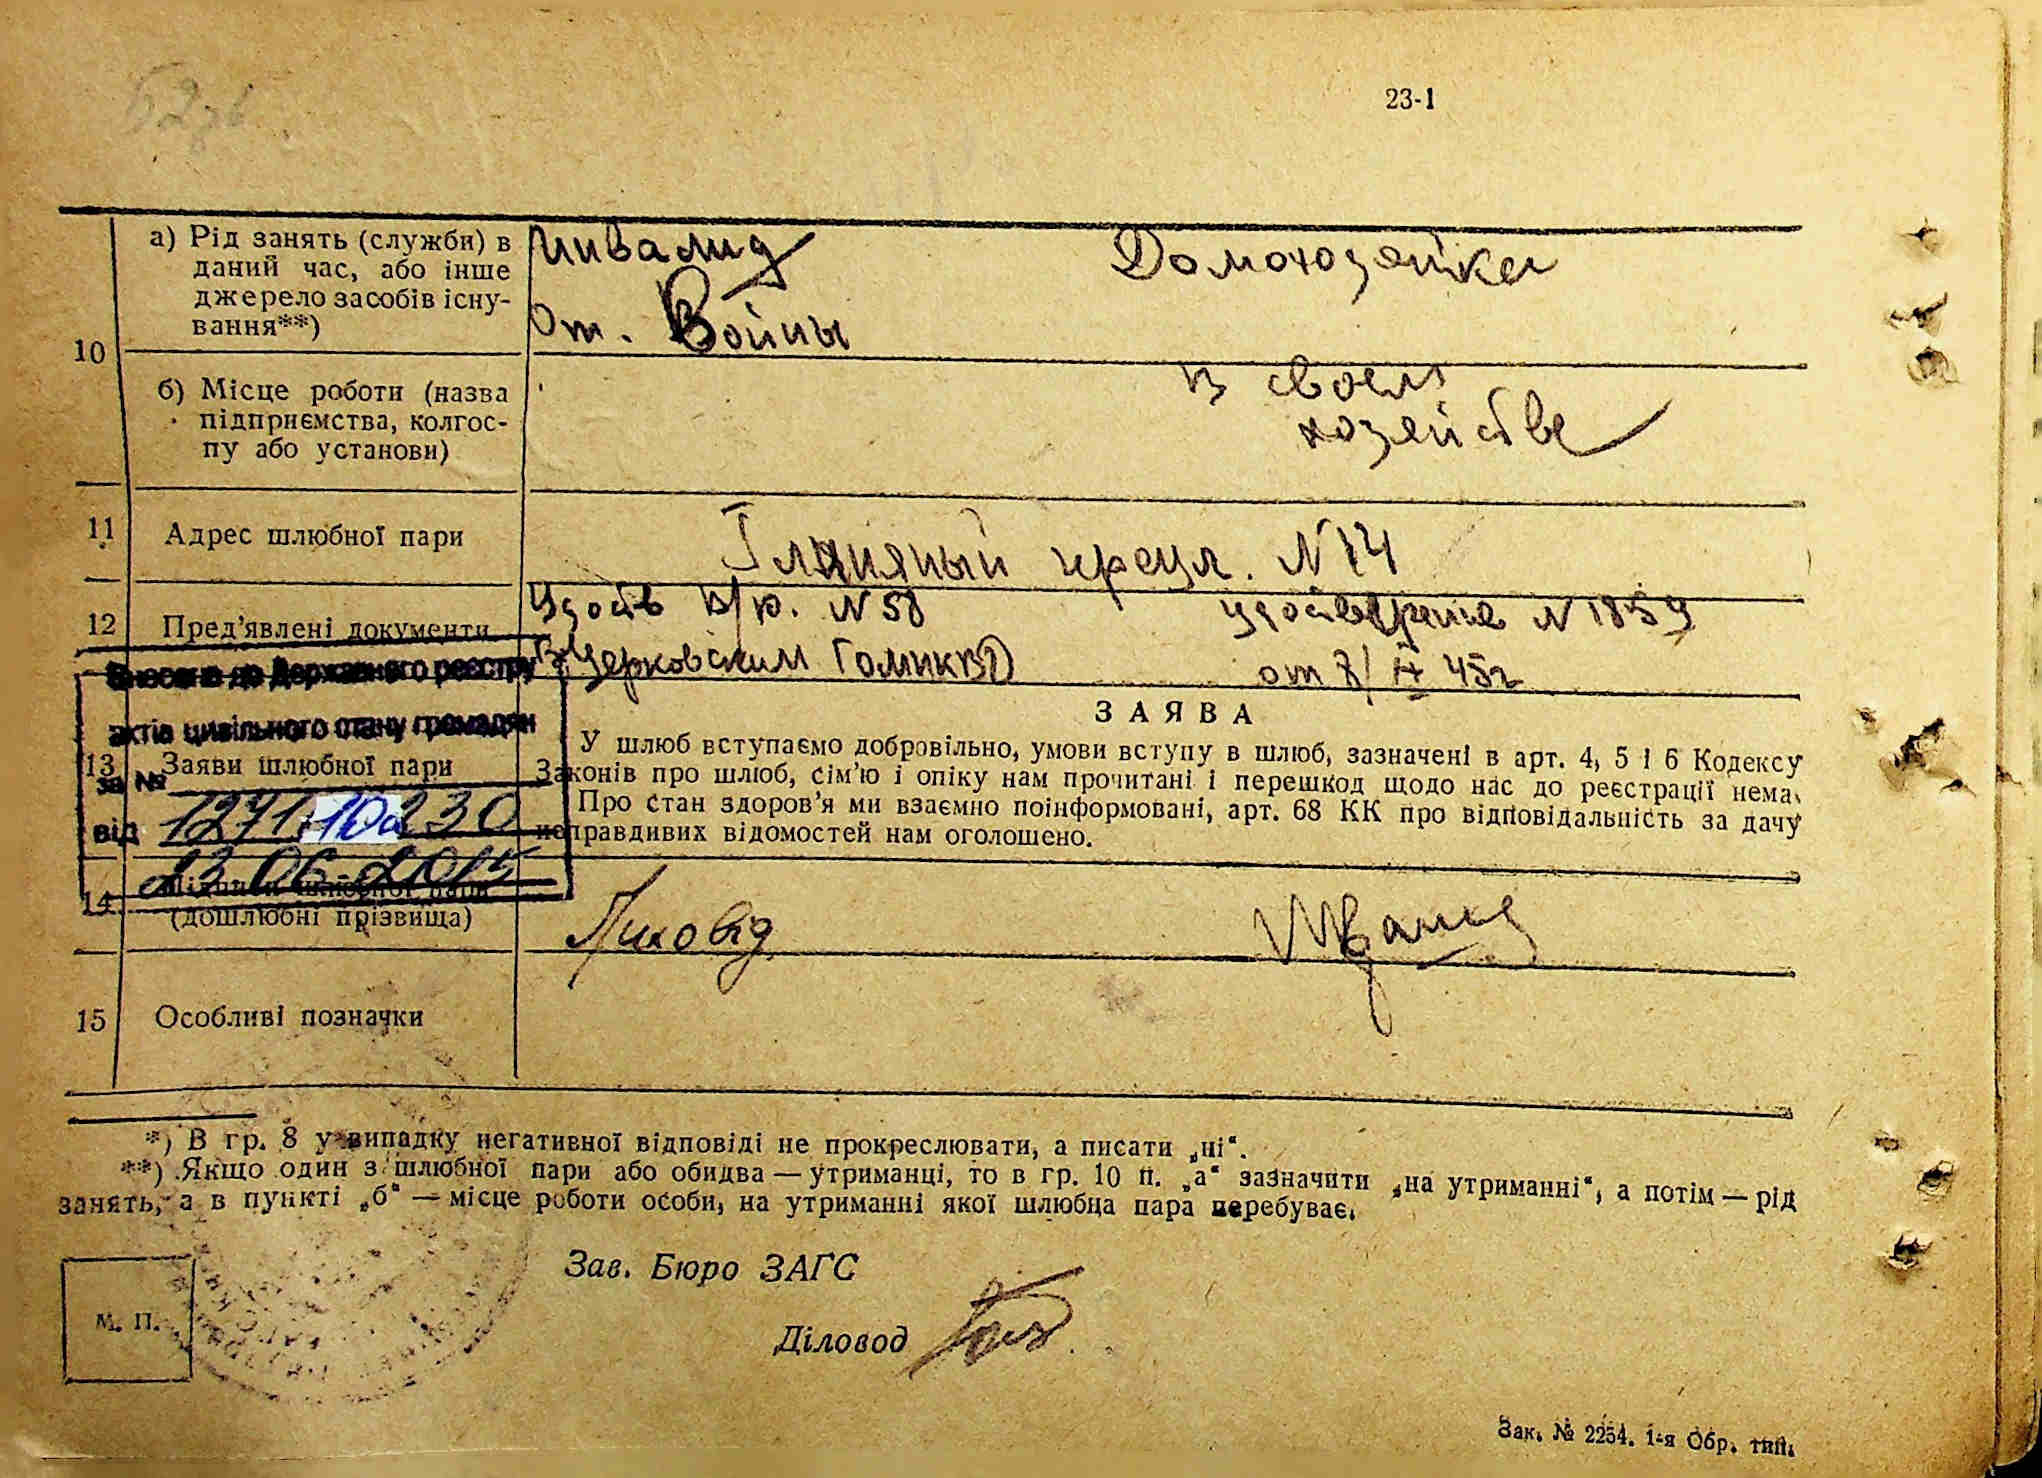 23-1
10
а) Рід занять (служби) в
даний час, або інше
джерело засобів існу-
вання**)
Инвалид
От. Войны
Домохозяйка
б) Місце роботи (назва
підприємства, колгос-
пу або установи)
в своем
хозяйстве
11
Адрес шлюбної пари
Глиняный переул. N 14
12
Пред’явлені документи
Удоств в/р. N 58
Церковским
N 1859
от 45г
Внесено до Державного реєстру
актів цивільного стану громадян
за №
1271 10а 230
від
23 06 2015
13
Заяви шлюбної пари
ЗАЯВА
У шлюб вступаємо добровільно, умови вступу в шлюб, зазначені в арт. 4, 5 і 6 Кодексу
Законів про шлюб, сім’ю і опіку нам прочитані і перешкод щодо нас до реєстрації нема.
Про стан здоров’я ми взаємно поінформовані, арт. 68 КК про відповідальність за дачу
неправдивих відомостей нам оголошено.
14
Підписи шлюбної пари
(дошлюбні прізвища)
Лиховід
15
Особливі позначки
*) В гр. 8 у випадку негативної відповіді не прокреслювати, а писати „ні“.
**) Якщо один з шлюбної пари або обидва — утриманці, то в гр. 10 п. „а“ зазначити „на утриманні“, а потім — рід
занять, а в пункті „б“ — місце роботи особи, на утриманні якої шлюбна пара перебуває.
Зав. Бюро ЗАГС
М. П.
Діловод
Зак. № 2254. 1-я Обр. тип.